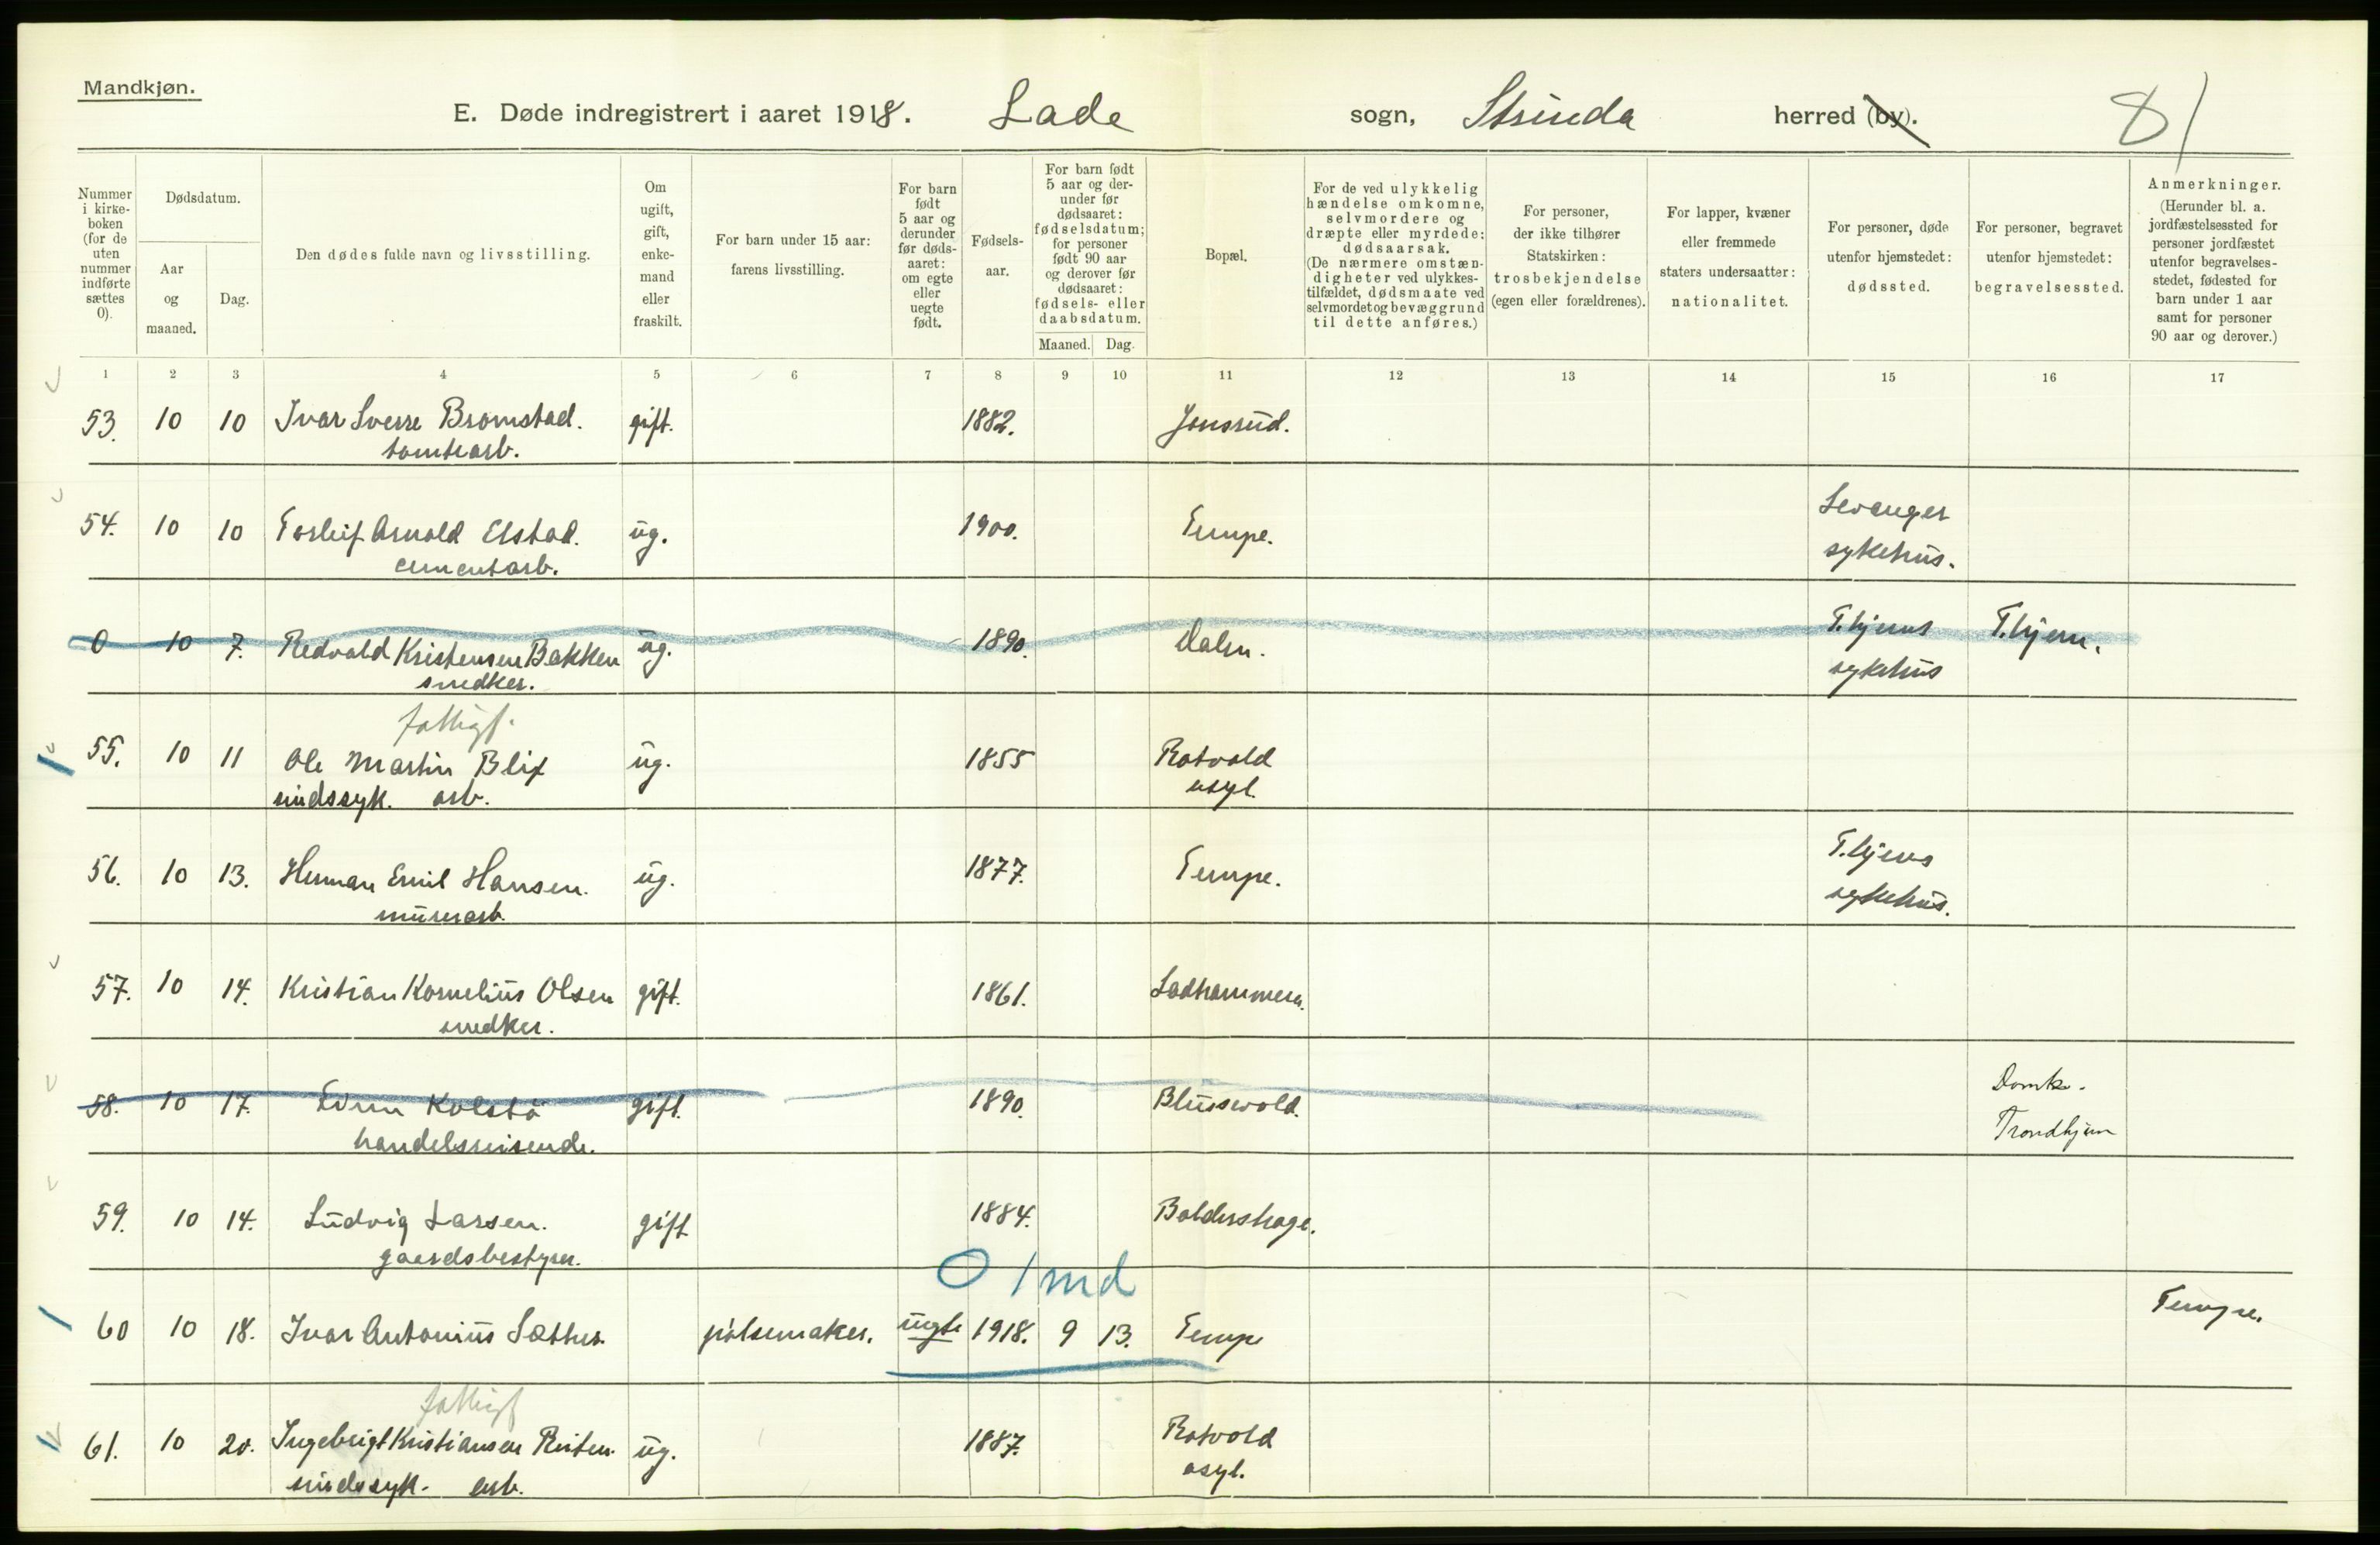 Mandkjøn.
E. Døde indregistrert i aaret 1918. Lade sogn, Strinda herred (by).
81
Nummer i kirke-boken (for de uten nummer indførte sættes 0).
Dødsdatum.
Aar og maaned.
Dag.
Den dødes fulde navn og livsstilling.
Om ugift, gift, enke-mand eller fraskilt.
For barn under 15 aar: farens livsstilling.
For barn født 5 aar og derunder før døds-aaret: om egte eller uegte født.
Fødsels-aar.
For barn født 5 aar og der-under før dødsaaret: fødselsdatum; for personer født 90 aar og derover før dødsaaret: fødsels- eller daabsdatum.
Maaned. Dag.
Bopæl.
For de ved ulykkelig hændelse omkomne, selvmordere og dræpte eller myrdede: dødsaarsak. (De nærmere omstæn-digheter ved ulykkes-tilfældet, dødsmaate ved selvmordet og bevæggrund til dette anføres.)
For personer, der ikke tilhører Statskirken: trosbekjendelse (egen eller forældrenes).
For lapper, kvæner eller fremmede staters undersaatter: nationalitet.
For personer, døde utenfor hjemstedet: dødssted.
For personer, begravet utenfor hjemstedet: begravelsessted.
Anmerkninger. (Herunder bl. a. jordfæstelsessted for personer jordfæstet utenfor begravelses-stedet, fødested for barn under 1 aar samt for personer 90 aar og derover.)
1 2 3 4 5 6 7 8 9 10 11 12 13 14 15 16 17
53. 10 10 Ivar Sverre Bromstad. gift. 1882. Jonsrud.
tomtearb.
54. 10 10 Torleif Arnold Elstad. ug. 1900. Tempe. Levanger
cementarb. sykehus.
0 10 7. Redvald Kristensen Bakken ug. 1890. Dalen. T.hjems T.hjem.
snedker. sykehus
fattigf.
55. 10 11 Ole Martin Blix ug. 1855 Rotvold
sindssyk. arb. asyl.
56. 10 13. Herman Emil Hansen. ug. 1877. Tempe. T.hjems
murerarb. sykehus.
57. 10 14. Kristian Kornelius Olsen gift. 1861. Ladhammeren.
snedker.
58. 10 17. Kolstö gift. 1890. Blussvold. Domk.
handelsreisende. Trondhjem
59. 10 14. Ludvig Larsen. gift 1884. Baldershage.
gaardsbestyrer.
0 1 md
60 10 18. Ivar Antonius Sæther pölsemaker. uegte 1918. 9 13. Tempe Tempe.
fattigf
61. 10 20. Ingebrigt Kristiansen Reiten. ug. 1887. Rotvold
sindssyk. arb. asyl.